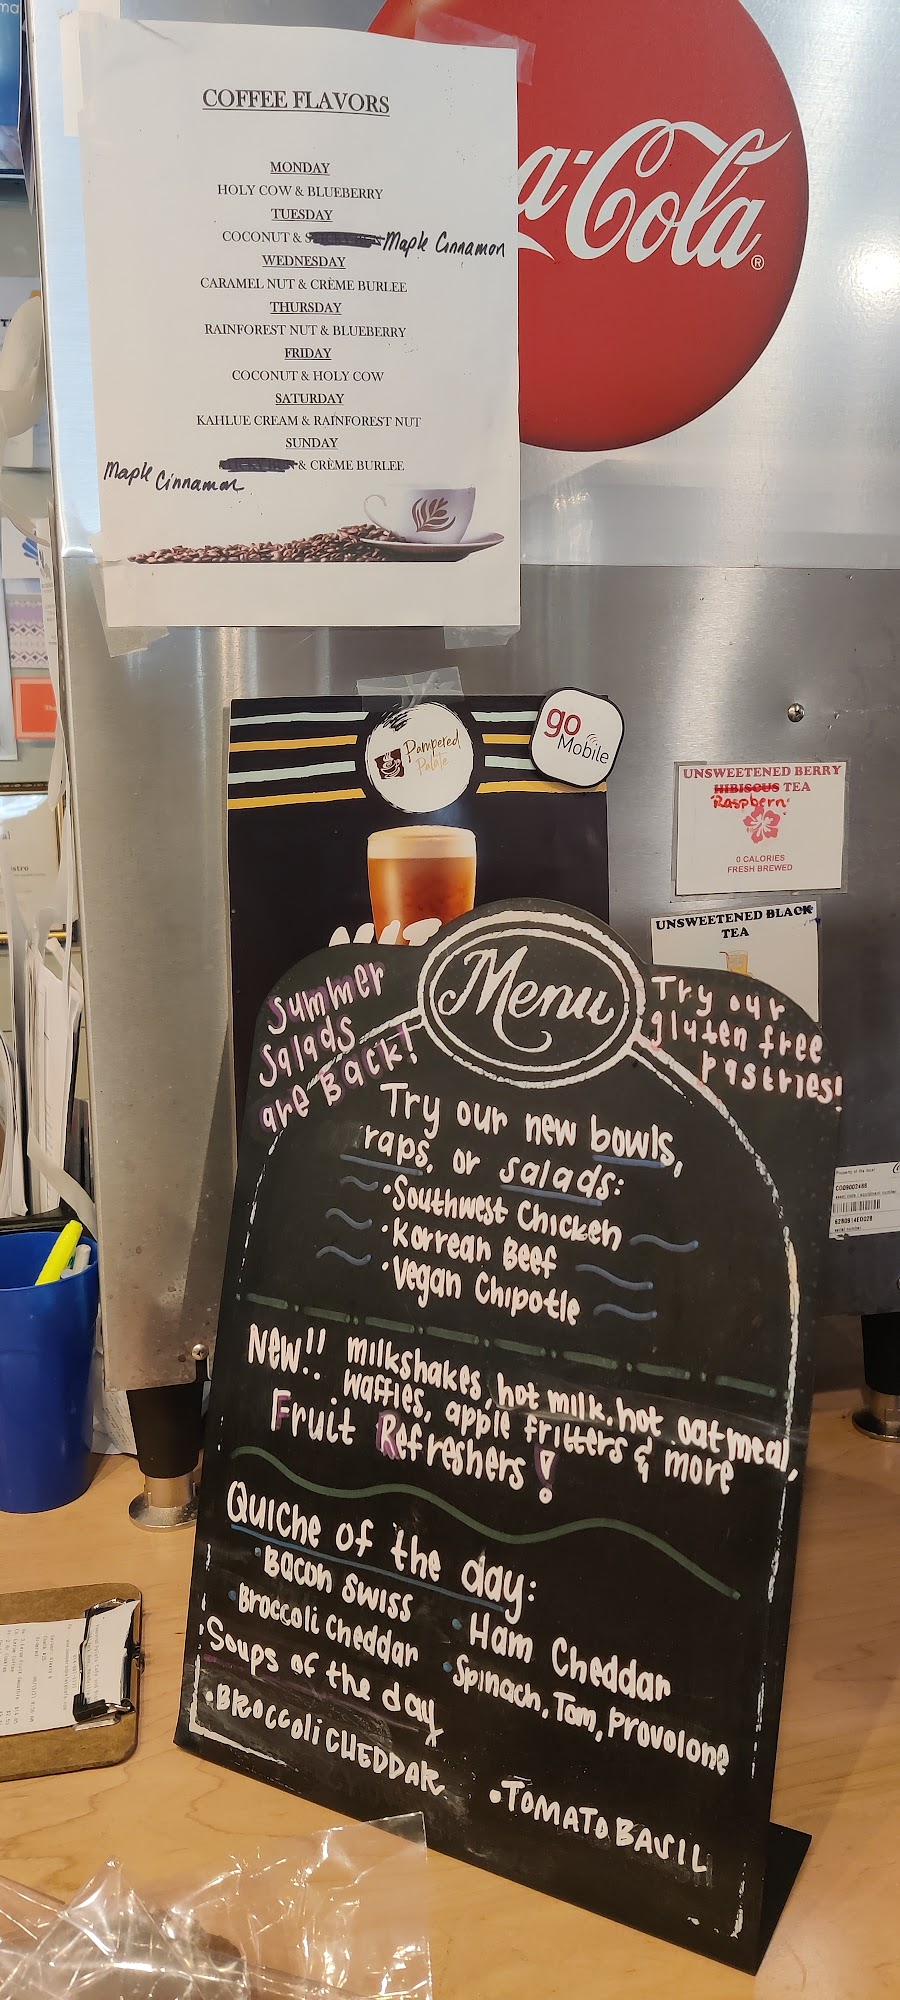 COFFEE FLAVORS
MONDAY
HOLY COW & BLUEBERRY
TUESDAY
COCONUT & S Maple Cinnamon
WEDNESDAY
CARAMEL NUT & CRÈME BURLEE
THURSDAY
RAINFOREST NUT & BLUEBERRY
FRIDAY
COCONUT & HOLY COW
SATURDAY
KAHLUE CREAM & RAINFOREST NUT
SUNDAY
& CRÈME BURLEE
Maple Cinnamon
a-Cola®
Pampered
Palate
go
Mobile
UNSWEETENED BERRY
HIBISCUS TEA
Raspberry
0 CALORIES
FRESH BREWED
UNSWEETENED BLACK
TEA
Menu
Summer
Salads
are BACK!
Try our
gluten free
pastries!
Try our new bowls,
raps, or salads:
• Southwest Chicken
• Korrean Beef
• Vegan Chipotle
New!! milkshakes, hot milk, hot oatmeal,
waffles, apple fritters & more
Fruit Refreshers!
Quiche of the day:
• Bacon Swiss
• Broccoli Cheddar
• Ham Cheddar
• Spinach, Tom, Provolone
Soups of the day
• BROCCOLI CHEDDAR
• TOMATO BASIL